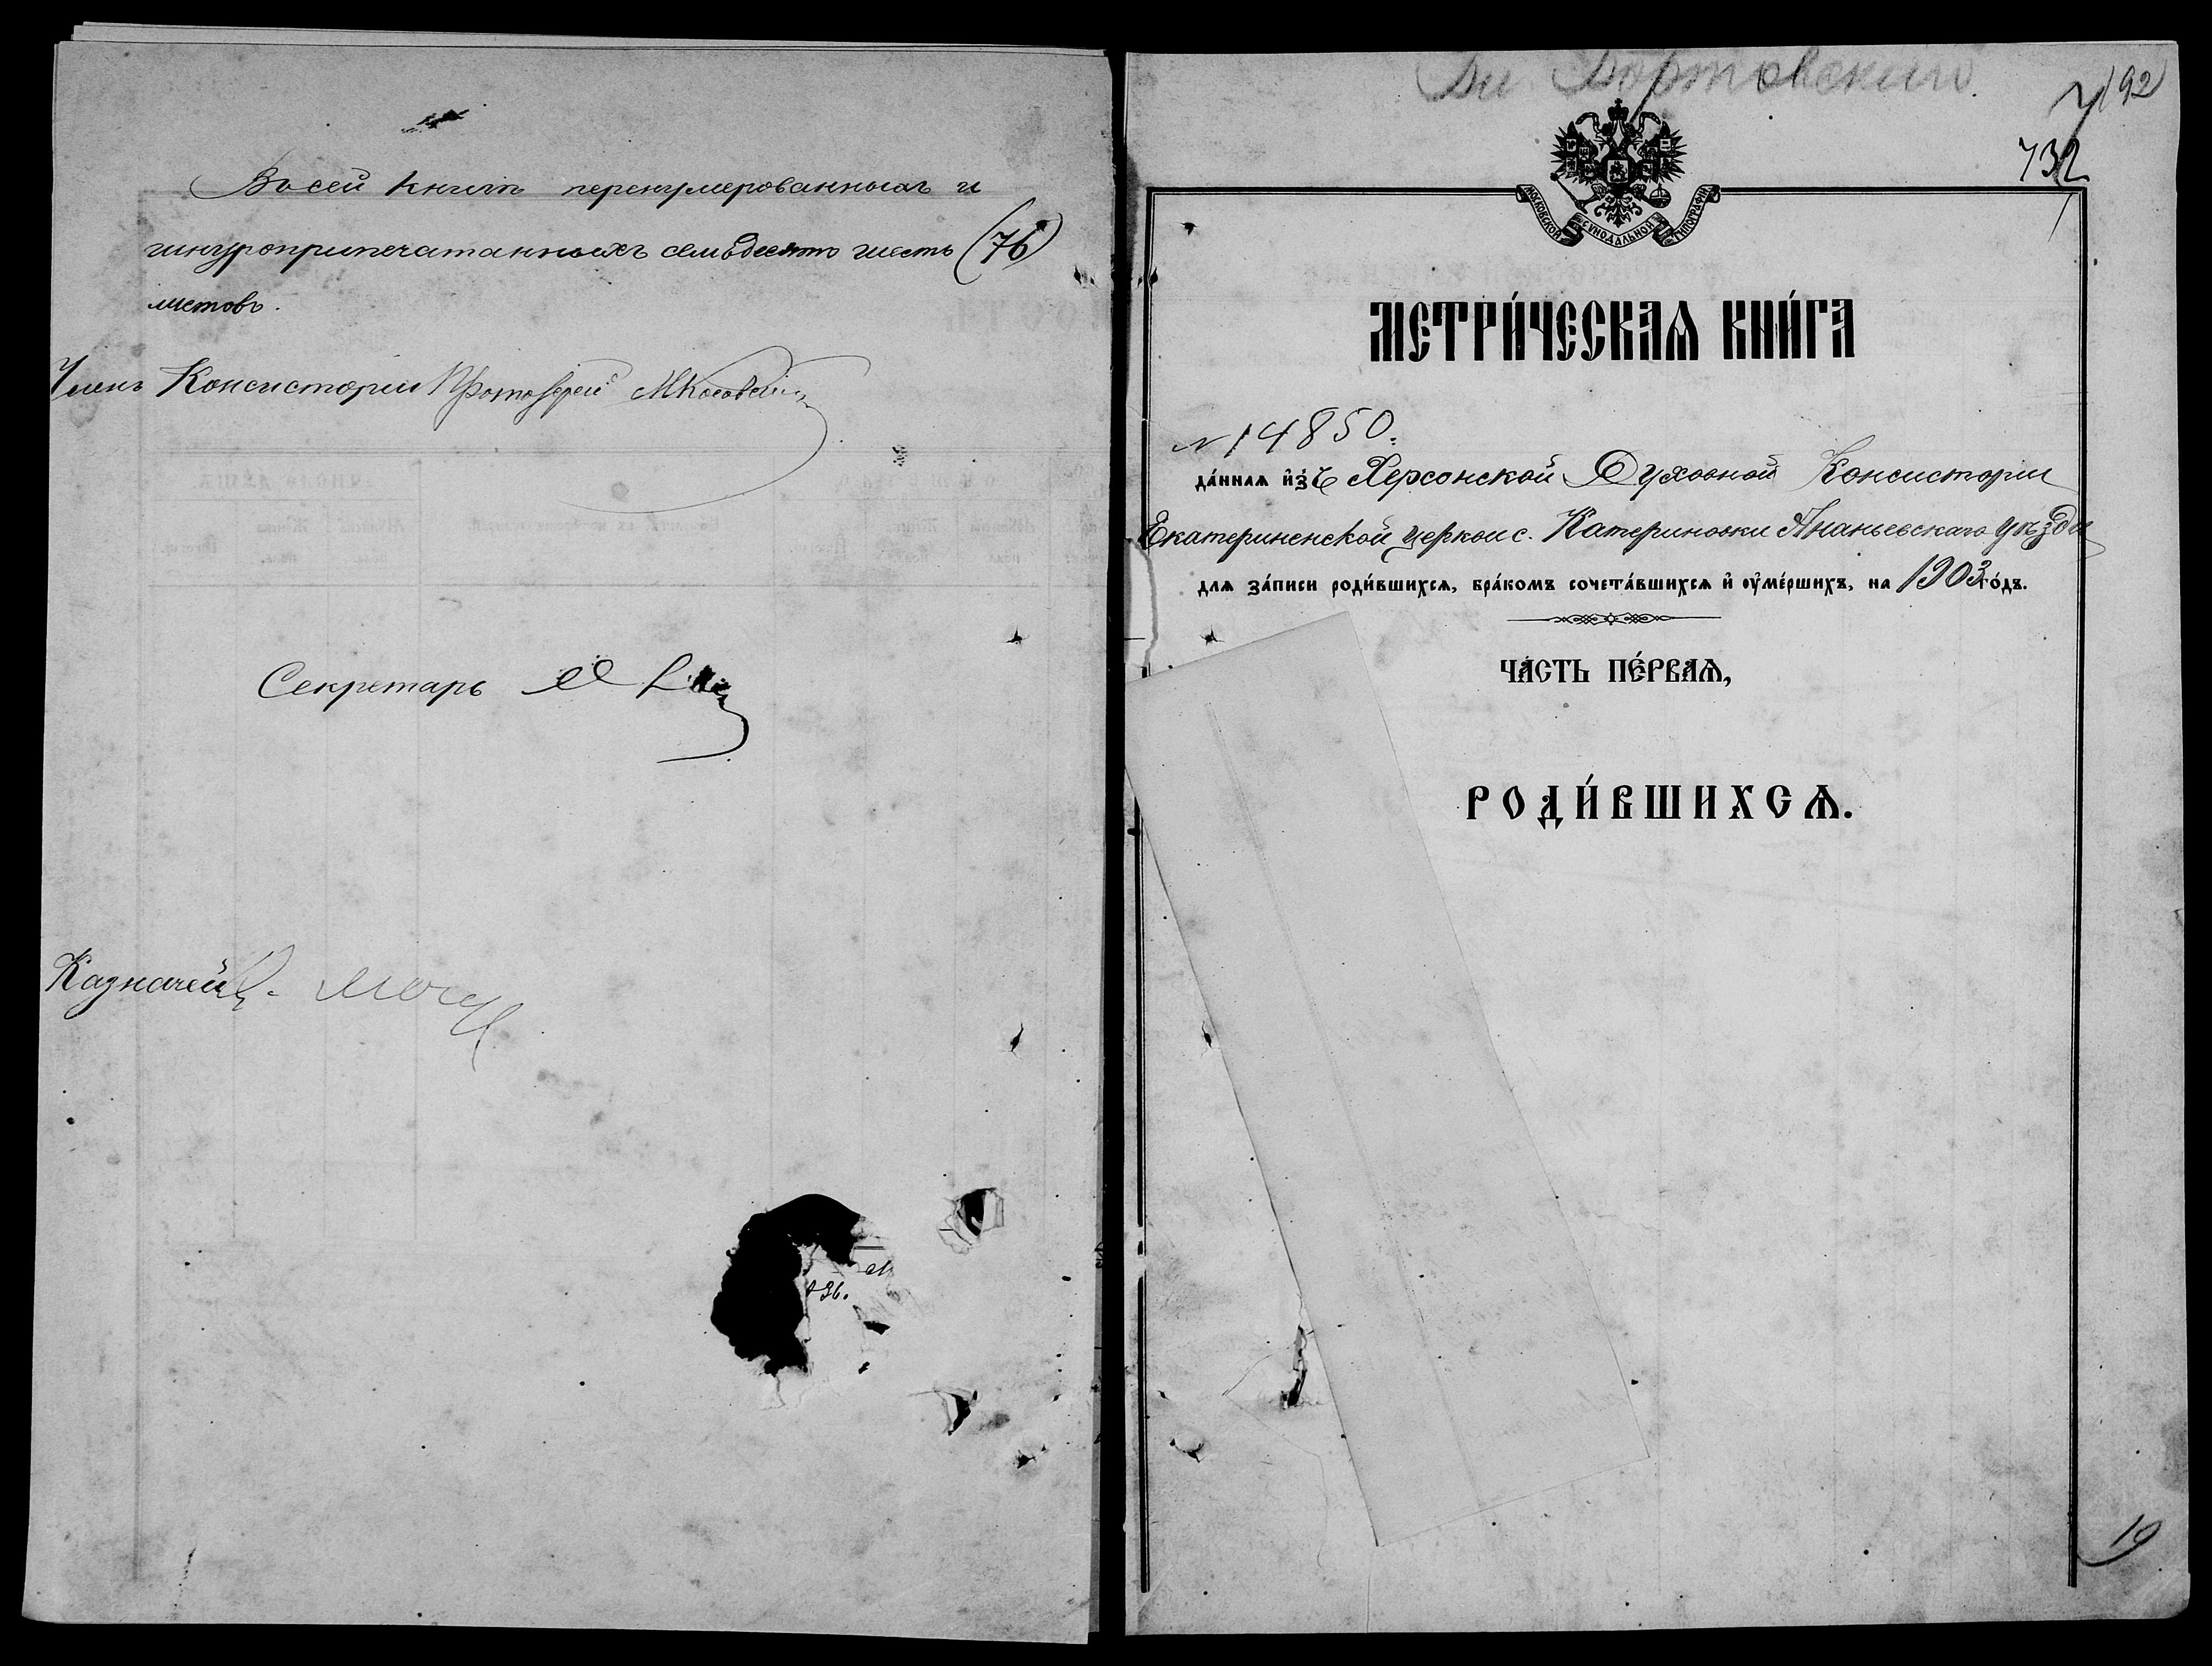 Въ сей книгѣ перенумерованныхъ и
шнуроприпечатанныхъ семьдесятъ шесть (76)
листовъ.
Членъ Консисторіи Протоіерей М Косовскій
Секретарь
Казначей
192
732
МОСКОВСКОЙ СѴНОДАЛЬНОЙ ТИПОГРАФІИ
МЕТРИ́ЧЕСКАѦ КНИ́ГА
№ 14850.
да́ннаѧ и҆зъ Херсонской Духовной Консисторіи
Екатериненской церкви с. Катериновки Ананьевскаго уѣзда
для за́писи роди́вшихсѧ, бра́комъ сочета́вшихсѧ и҆ оу҆ме́ршихъ, на 1903 го́дъ.
ЧА́СТЬ ПЕ́РВАѦ,
РОДИ́ВШИХСѦ.
19